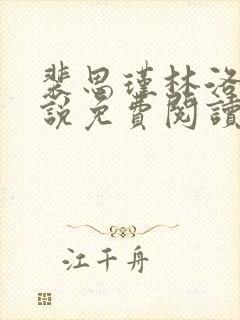 裴思瑾林洛
說免費閱讀
江千舟